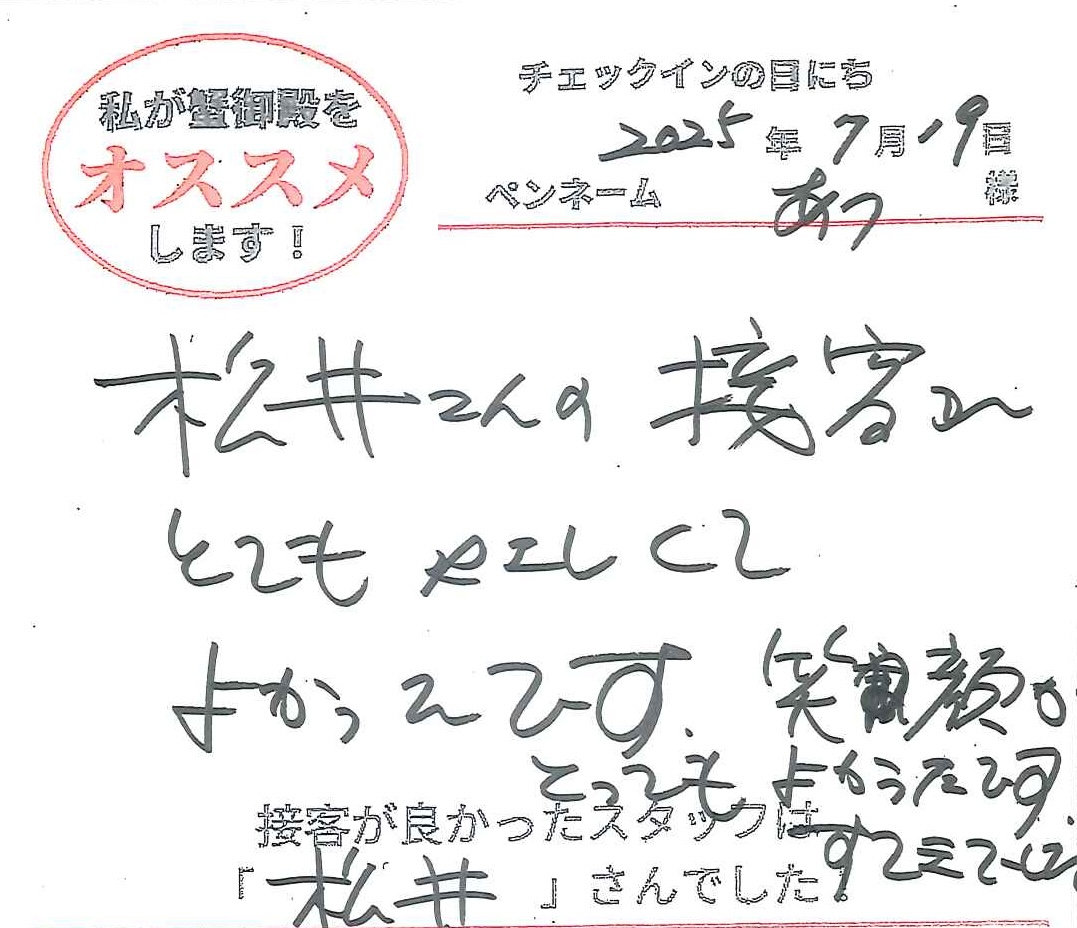 私が蟹御殿を
オススメ
します！
チェックインの日にち
2025年7月19日
ペンネーム あつ 様
松井さんの接客が
とてもやさしくて
よかったです。笑顔が
とってもよかったです
接客が良かったスタッフは
「松井」さんでした！